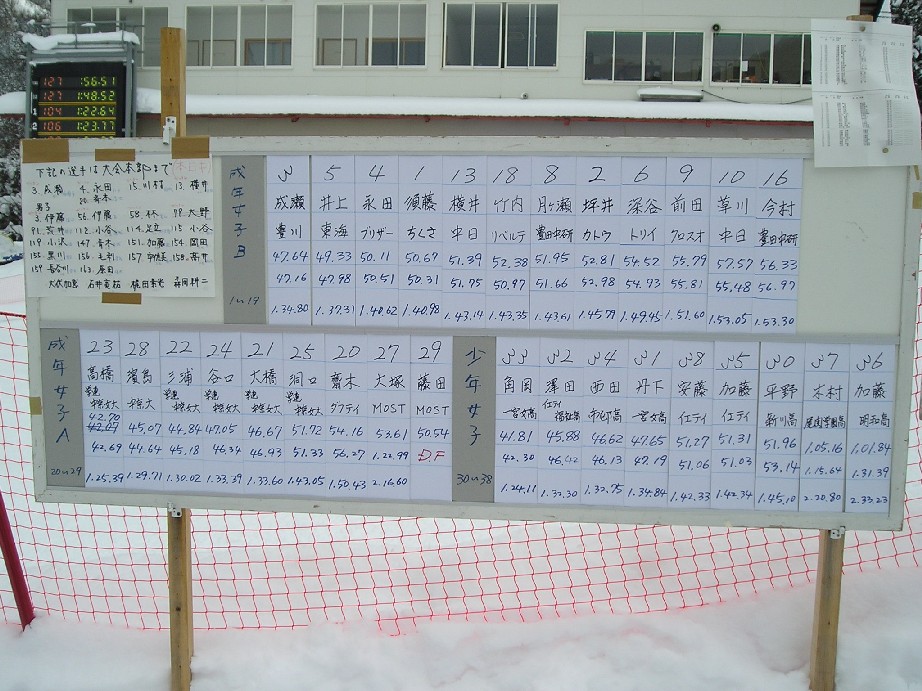 127 1:56.51
127 1:48.52
104 1:22.64
106 1:23.77
下記の選手は大会本部まで
3. 成瀬 4. 永田 15. 川村 13. 横井
男子 20 斎木
3. 伊藤 56. 伊藤 58. 林 78. 大野
91. 荒井 112. 小谷 114. 足立 115. 小谷
119. 小沢 149. 青木 151. 加藤 154. 岡田
155. 黒川 156. 毛利 158. 高井
159. 長谷川 163. 原田
石井 植田 森岡耕二
成年女子B
1〜19
3 5 4 1 13 18 8 2 6 9 10 16
成瀬 井上 永田 須藤 横井 竹内 月ヶ瀬 坪井 深谷 前田 草川 今村
豊川 東海 ブリザー ちくさ 中日 リベルテ 豊田中研 カトウ トリイ クロスオ 中日 豊田中研
47.64 49.33 50.11 50.67 51.39 52.38 51.95 52.81 54.52 55.79 57.57 56.33
47.16 47.98 50.51 50.31 51.75 50.97 51.66 52.98 54.93 55.81 55.48 56.97
1.34.80 1.37.31 1.40.62 1.40.98 1.43.14 1.43.35 1.43.61 1.45.79 1.49.45 1.51.60 1.53.05 1.53.30
成年女子A
20〜29
23 28 22 24 21 25 20 27 29
高橋 濱島 三浦 谷口 大橋 洞口 斎木 大塚 藤田
グラフティ MOST MOST
42.70
45.07 44.84 47.05 46.67 51.72 54.16 53.61 50.54
42.69 44.64 45.18 46.34 46.93 51.33 56.27 1.22.99 D.F
1.25.39 1.29.71 1.30.02 1.33.39 1.33.60 1.43.05 1.50.43 2.16.60
少年女子
30〜38
33 32 34 31 38 35 30 37 36
角岡 澤田 西田 丹下 安藤 加藤 平野 木村 加藤
一宮女高 和町高 一宮女高 仁テイ 仁テイ 新川高 明和高
41.81 45.88 46.62 47.65 51.27 51.31 51.96 1.05.16 1.01.84
42.30 46.42 46.13 47.19 51.06 51.03 53.14 1.15.64 1.31.39
1.24.11 1.32.30 1.32.75 1.34.84 1.42.33 1.42.34 1.45.10 2.20.80 2.33.23